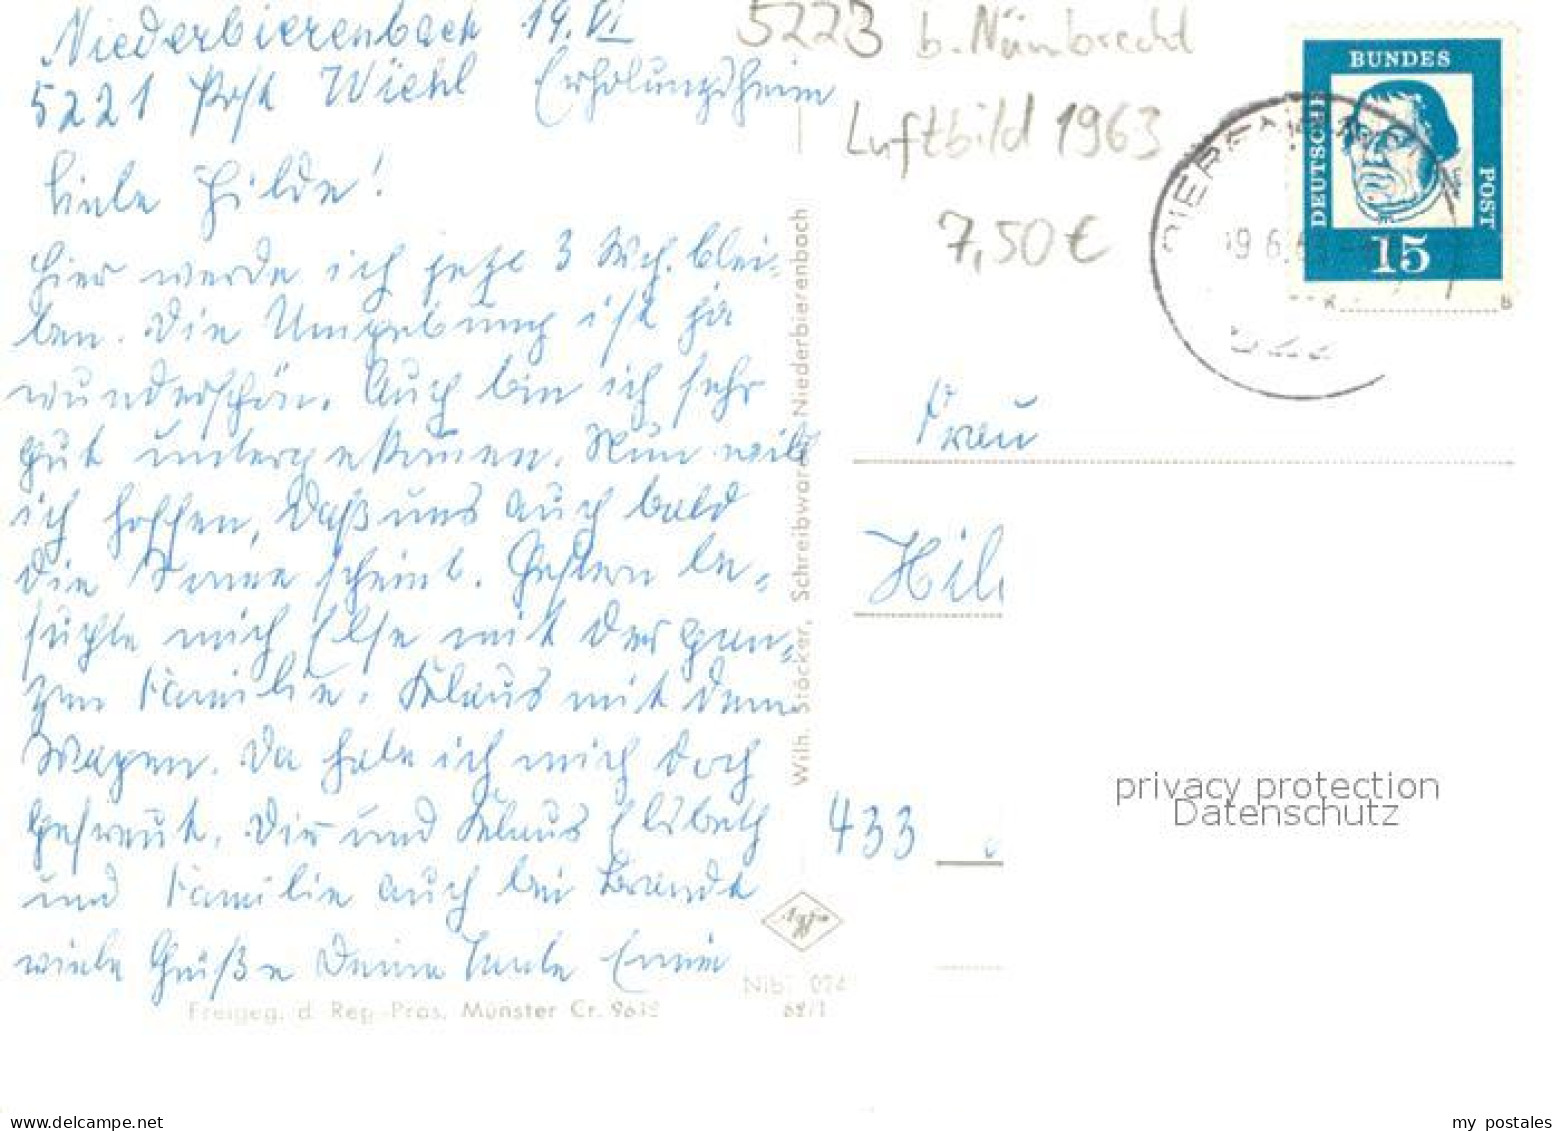 Niederbierenbach 19. VI
5221 Post Wiehl Erholungsheim
Liebe Hilde!
Hier werde ich jetzt 3 Wch. blei-
ben. Die Umgebung ist ja
wunderschön. Auch bin ich sehr
gut untergekommen. Nun will
ich hoffen, daß uns auch bald
die Sonne scheint. Gestern be-
suchte mich Else mit der gan-
zen Familie. Klaus mit dem
Wagen. Da habe ich mich doch
gefreut. Dir und Klaus Elsbeth
und Familie auch bei
viele Grüße Deine Tante
Freigeg. d. Reg.-Präs. Münster Cr. 963
Wilh. Stöcker, Schreibwaren, Niederbierenbach
Agfa
Nib. 024
62/1
5223 b. Nümbrecht
Luftbild 1963
7,50€
DEUTSCHE BUNDES POST
15
B
Frau
Hil
433
privacy protection
Datenschutz
my postales